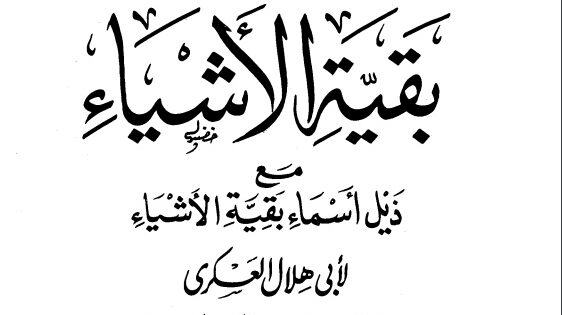 بَقِيَّةِ الأَشْيَاءِ
مَعَ
ذَيْل أَسْمَاءِ بَقِيَّةِ الأَشْيَاءِ
لأبى هلال العَسْكرى